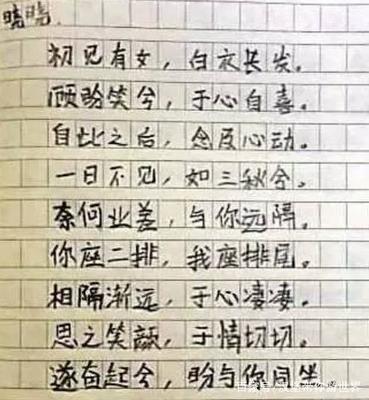 晓晓
初见有女，白衣长发。
顾盼笑兮，于心自喜。
自此之后，念及心动。
一日不见，如三秋兮。
奈何业差，与你远隔。
你座二排，我座排尾。
相隔渐远，于心凄凄。
思之笑颜，于情切切。
遂奋起兮，盼与你同坐